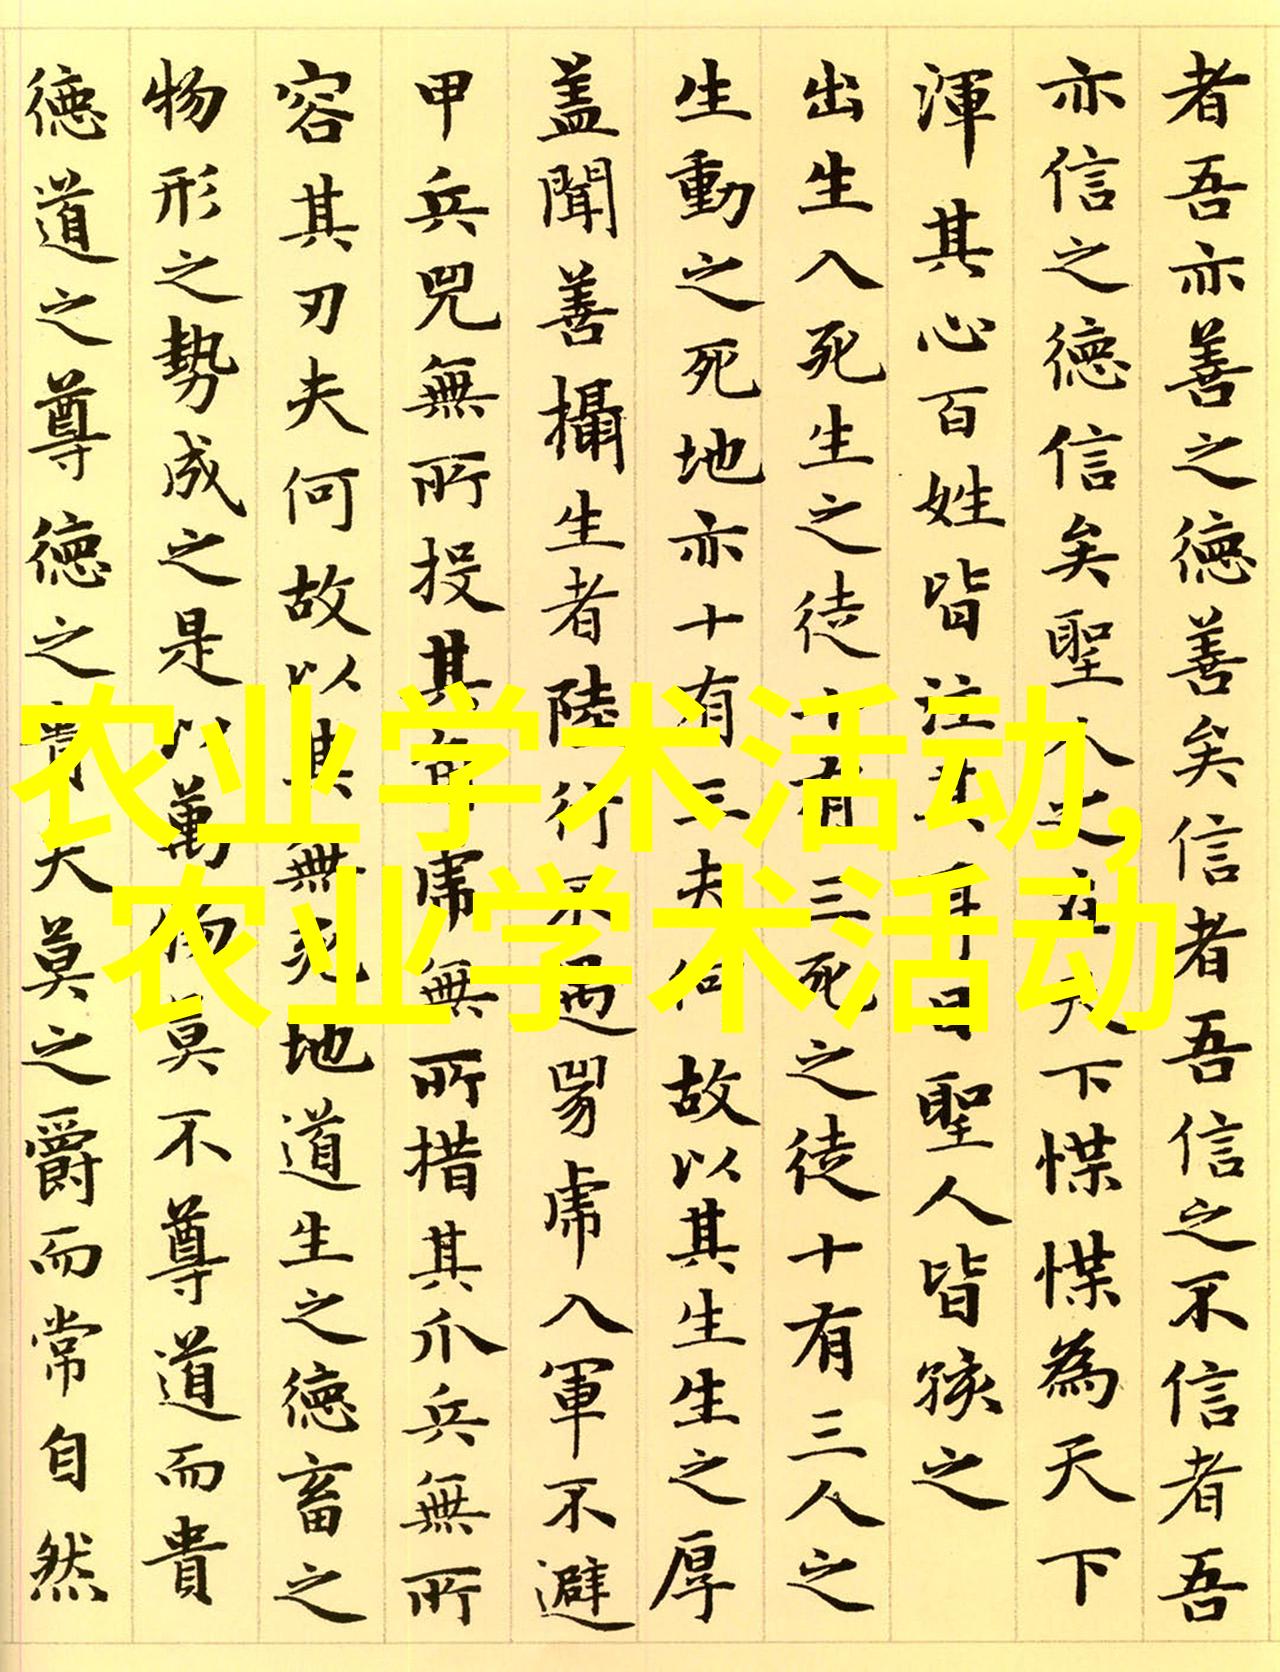 者吾亦善之德善矣信者吾信之不信者吾
亦信之德信矣聖人之在天下惵惵為天下
渾其心百姓皆注其耳目聖人皆孩之
出生入死生之徒十有三死之徒十有三人之
生動之死地亦十有三夫何故以其生生之厚
蓋聞善攝生者陸行不遇兕虎入軍不避
甲兵兕無所投其角虎無所措其爪兵無所
容其刃夫何故以其無死地道生之德畜之
物形之勢成之是以萬物莫不尊道而貴
德道之尊德之貴夫莫之爵而常自然
农业学术活动,
农业学术活动